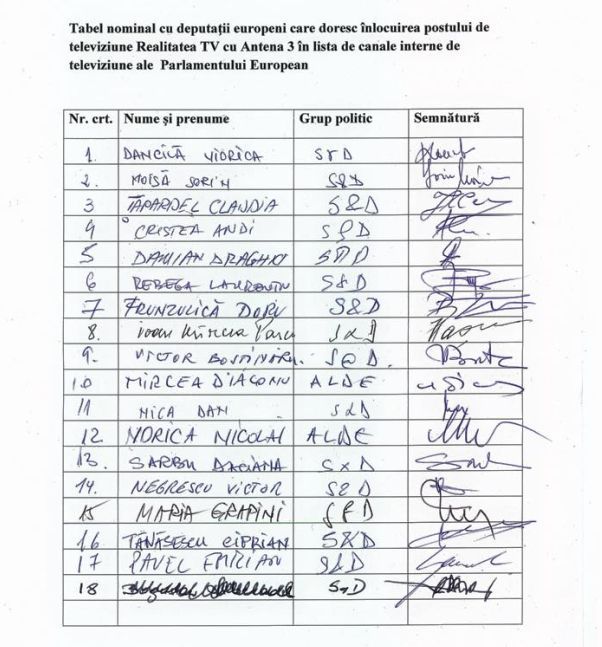 Tabel nominal cu deputaţii europeni care doresc înlocuirea postului de
televiziune Realitatea TV cu Antena 3 în lista de canale interne de
televiziune ale Parlamentului European
Nr. crt. Nume şi prenume Grup politic Semnătură
1. DANCILĂ VIORICA S&D
2. MOISĂ SORIN S&D
3 ȚAPARDEL CLAUDIA S&D
4 CRISTEA ANDI S&D
5 DAMIAN DRAGHICI S&D
6 REBEGA LAURENȚIU S&D
7 FRUNZULICĂ DORU S&D
8. Ioan Mircea Pașcu S&D
9. VICTOR BOȘTINARU. S&D.
10 MIRCEA DIACONU ALDE
11 NICA DAN S&D
12 NORICA NICOLAI ALDE
13. SARBU DACIANA S&D
14. NEGRESCU VICTOR S&D
15 MARIA GRAPINI S&D
16 TĂNĂSESCU CIPRIAN S&D
17 PAVEL EMILIAN S&D
18 S&D